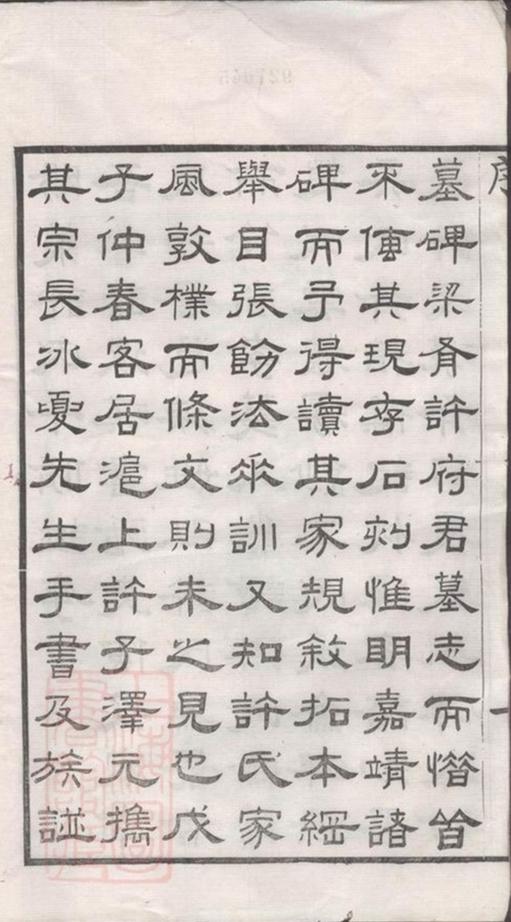 序
一
墓碑梁肯許府君墓志而憯皆
不傳其現存石刻惟明嘉靖諸
碑而予得讀其家規敘拓本綱
舉目張飭法垂訓又知許氏家
風敦樸而條文則未之見也戊
子仲春客居滬上許子澤元攜
其宗長冰夏先生手書及族誌